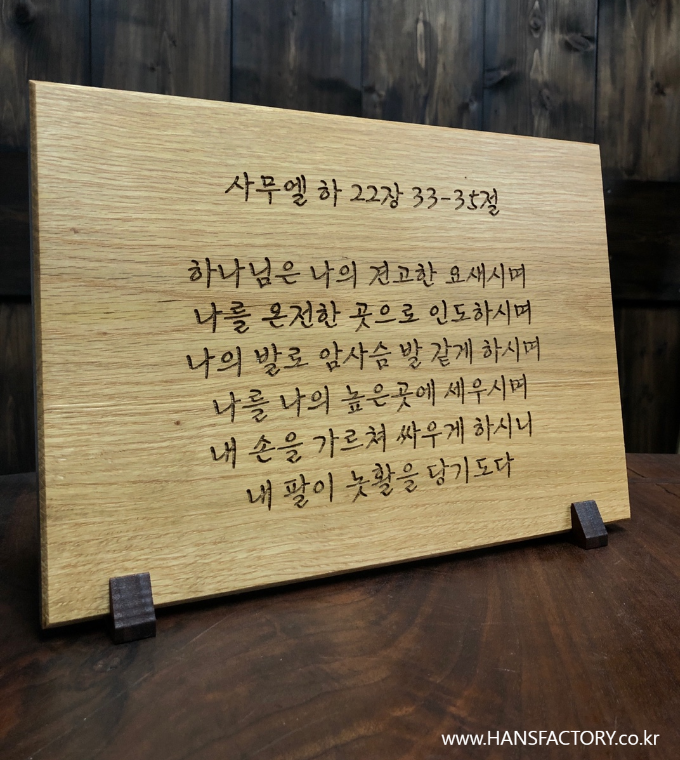 사무엘 하 22장 33-35절
하나님은 나의 견고한 요새시며
나를 온전한 곳으로 인도하시며
나의 발로 암사슴 발 같게 하시며
나를 나의 높은곳에 세우시며
내 손을 가르쳐 싸우게 하시니
내 팔이 놋활을 당기도다
www.HANSFACTORY.co.kr